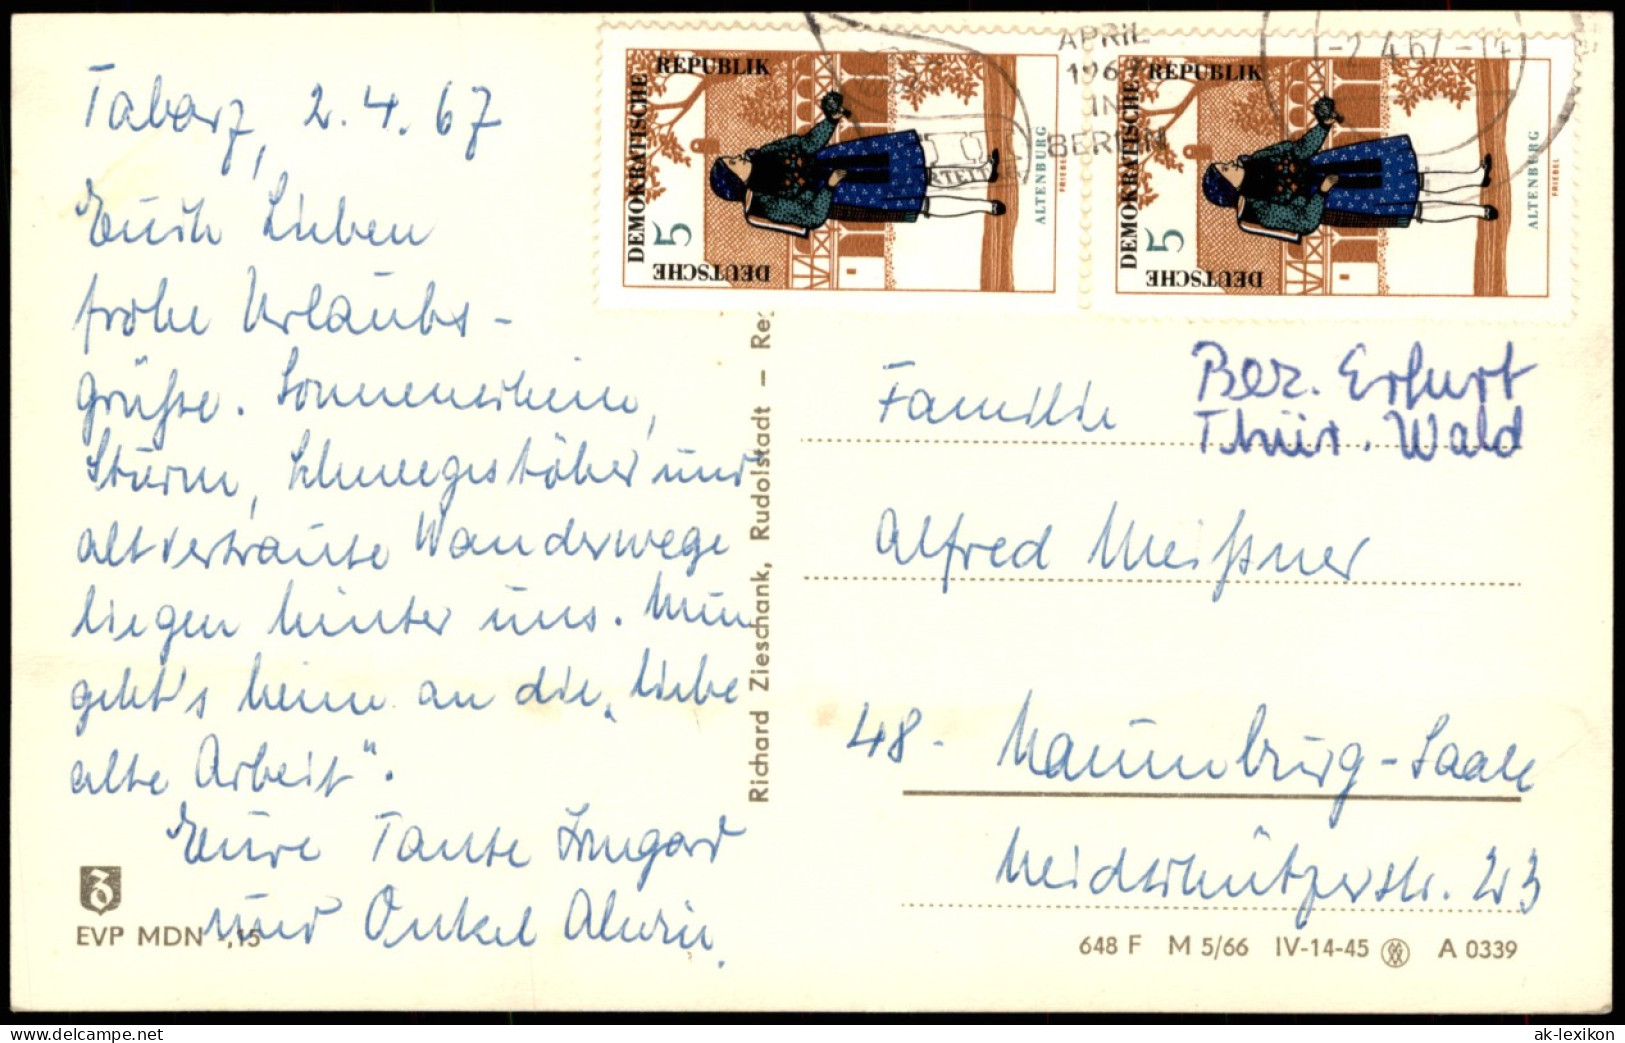 Tabarz, 2.4.67
Euch Lieben
frohe Urlaubs-
grüße. Sonnenschein,
Sturm, Schneegestöber und
altvertraute Wanderwege
liegen hinter uns. Nun
geht's heim an die „liebe
alte Arbeit“.
Eure Tante Irmgard
und Onkel Alwin.
EVP MDN -,15
Richard Zieschank, Rudolstadt — Re
DEUTSCHE DEMOKRATISCHE REPUBLIK
5
ALTENBURG
FRIEBEL
DEUTSCHE DEMOKRATISCHE REPUBLIK
5
ALTENBURG
FRIEBEL
APRIL
1967
IN
BERLIN
-2.4.67-14
Bez. Erfurt
Thür. Wald
Familie
Alfred Meißner
48 - Naumburg-Saale
Neidschützerstr. 23
648 F M 5/66 IV-14-45 A 0339
ak-lexikon
www.delcampe.net